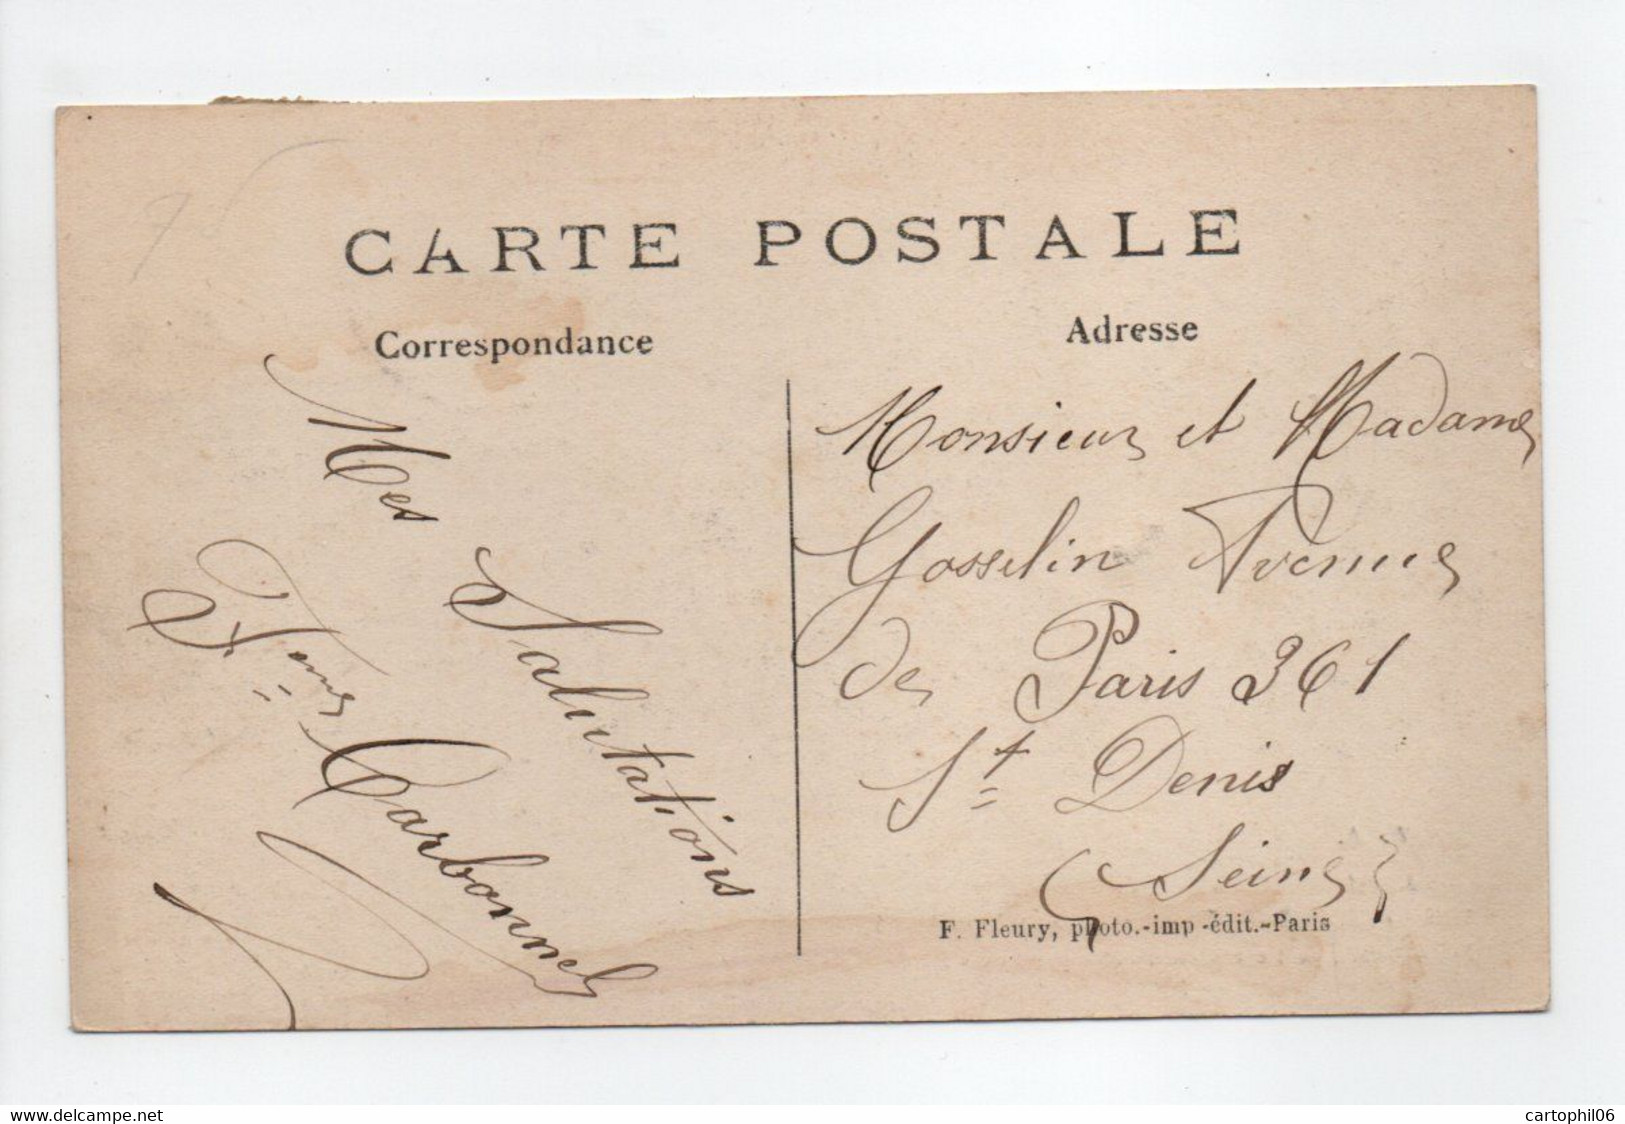 CARTE POSTALE
Correspondance
Mes Salutations
Carbonnel
Adresse
Monsieur et Madame
Gosselin Avenue
de Paris 361
St Denis
(Seine)
F. Fleury, photo.-imp-édit.-Paris
www.delcampe.net
cartophil06